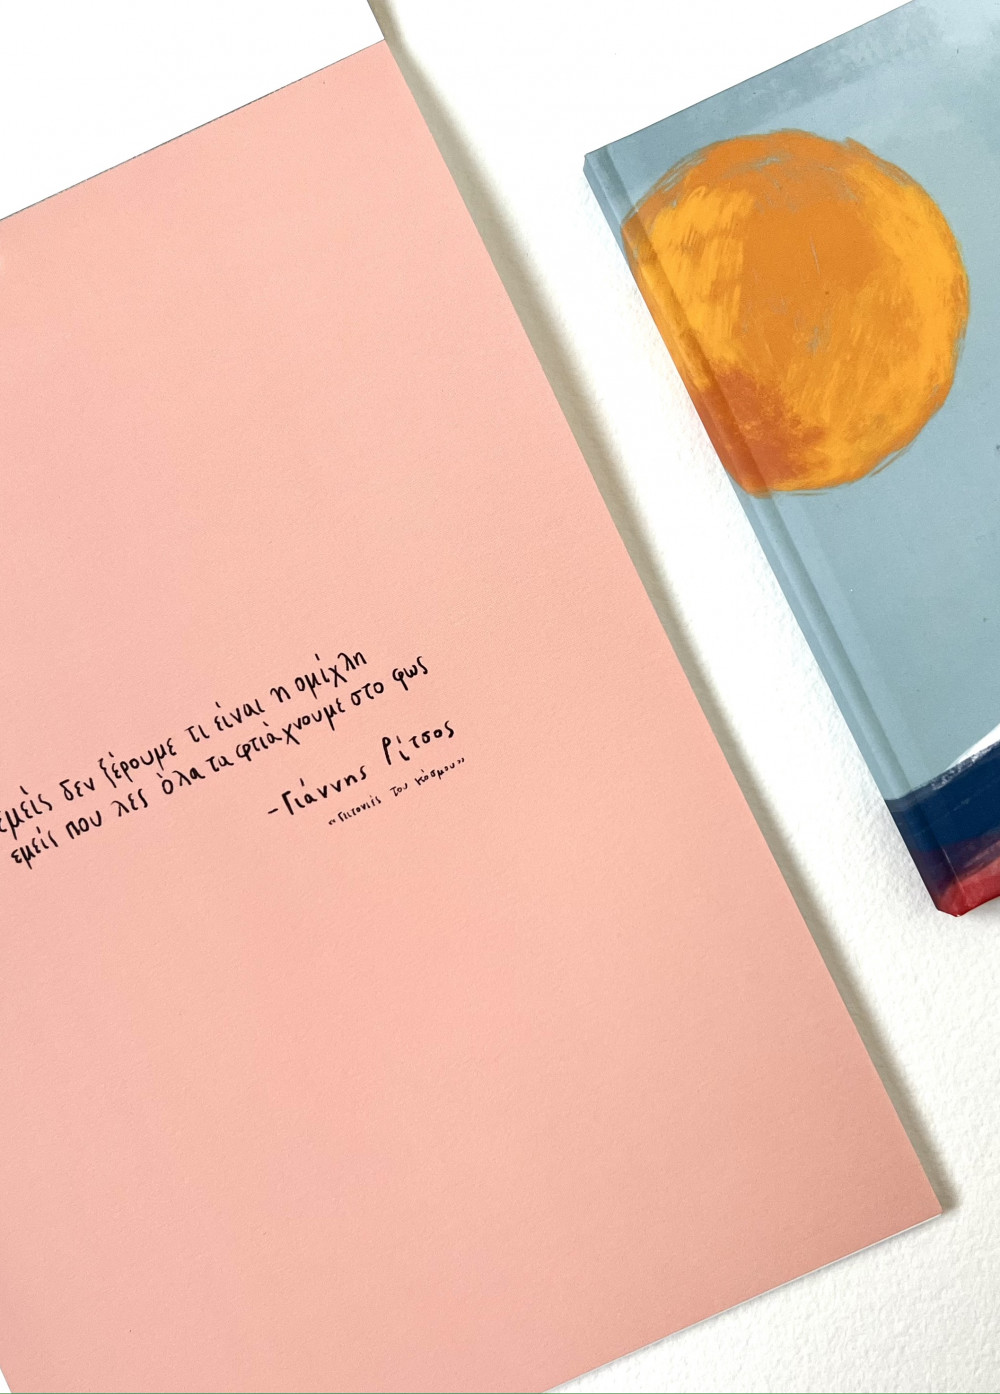 εμείς δεν ξέρουμε τι είναι η ομίχλη
εμείς που λες όλα τα φτιάχνουμε στο φως
-Γιάννης Ρίτσος
«Γειτονιές του κόσμου»